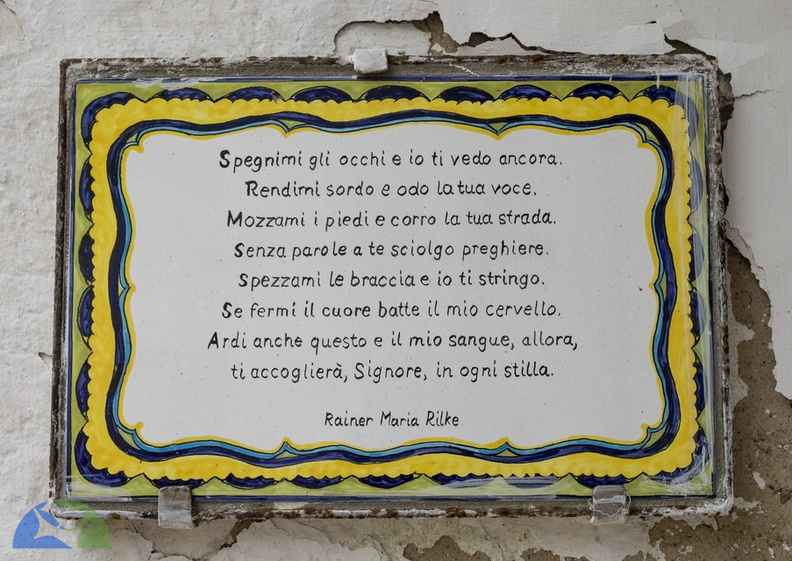 Spegnimi gli occhi e io ti vedo ancora.
Rendimi sordo e odo la tua voce.
Mozzami i piedi e corro la tua strada.
Senza parole a te sciolgo preghiere.
Spezzami le braccia e io ti stringo.
Se fermi il cuore batte il mio cervello.
Ardi anche questo e il mio sangue, allora,
ti accoglierà, Signore, in ogni stilla.
Rainer Maria Rilke